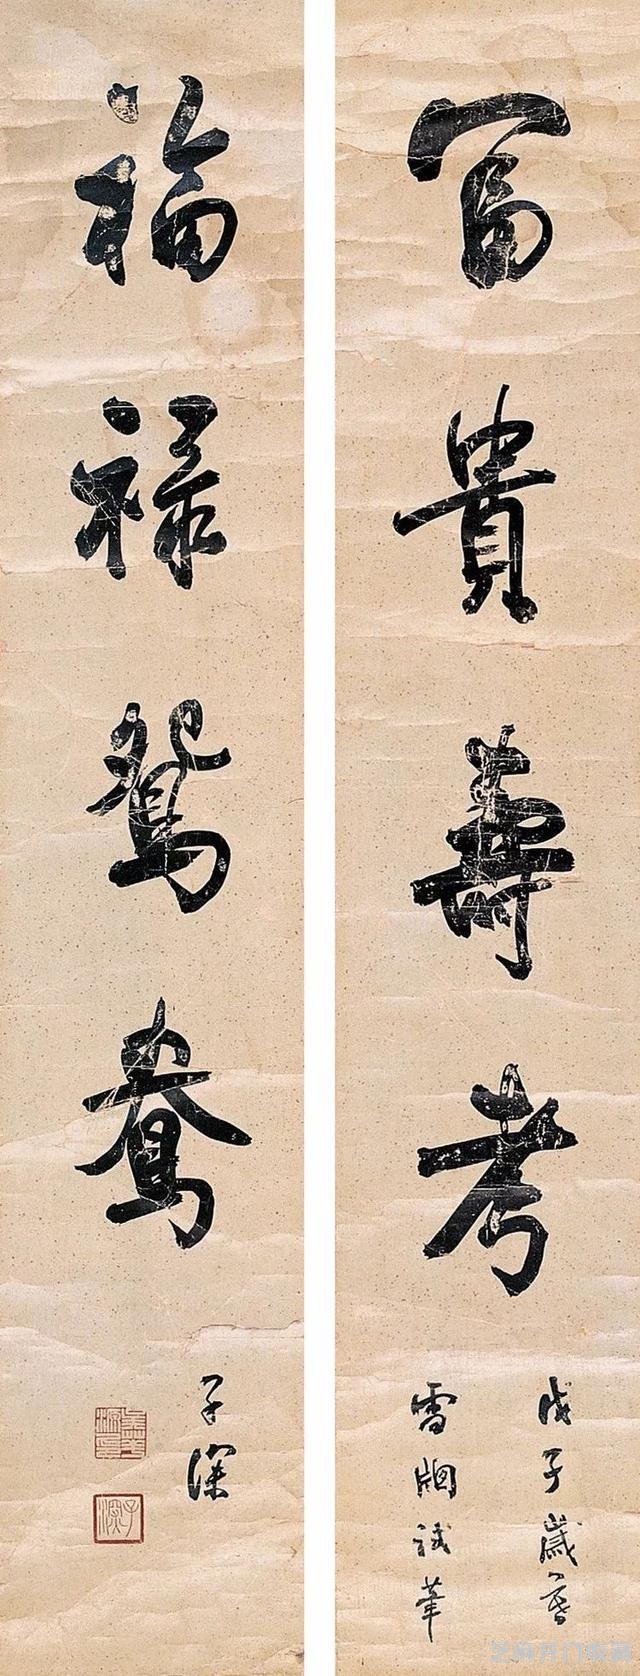 富貴壽考
戊子歲
雪牕試筆
福祿鴛鴦
子深
子深